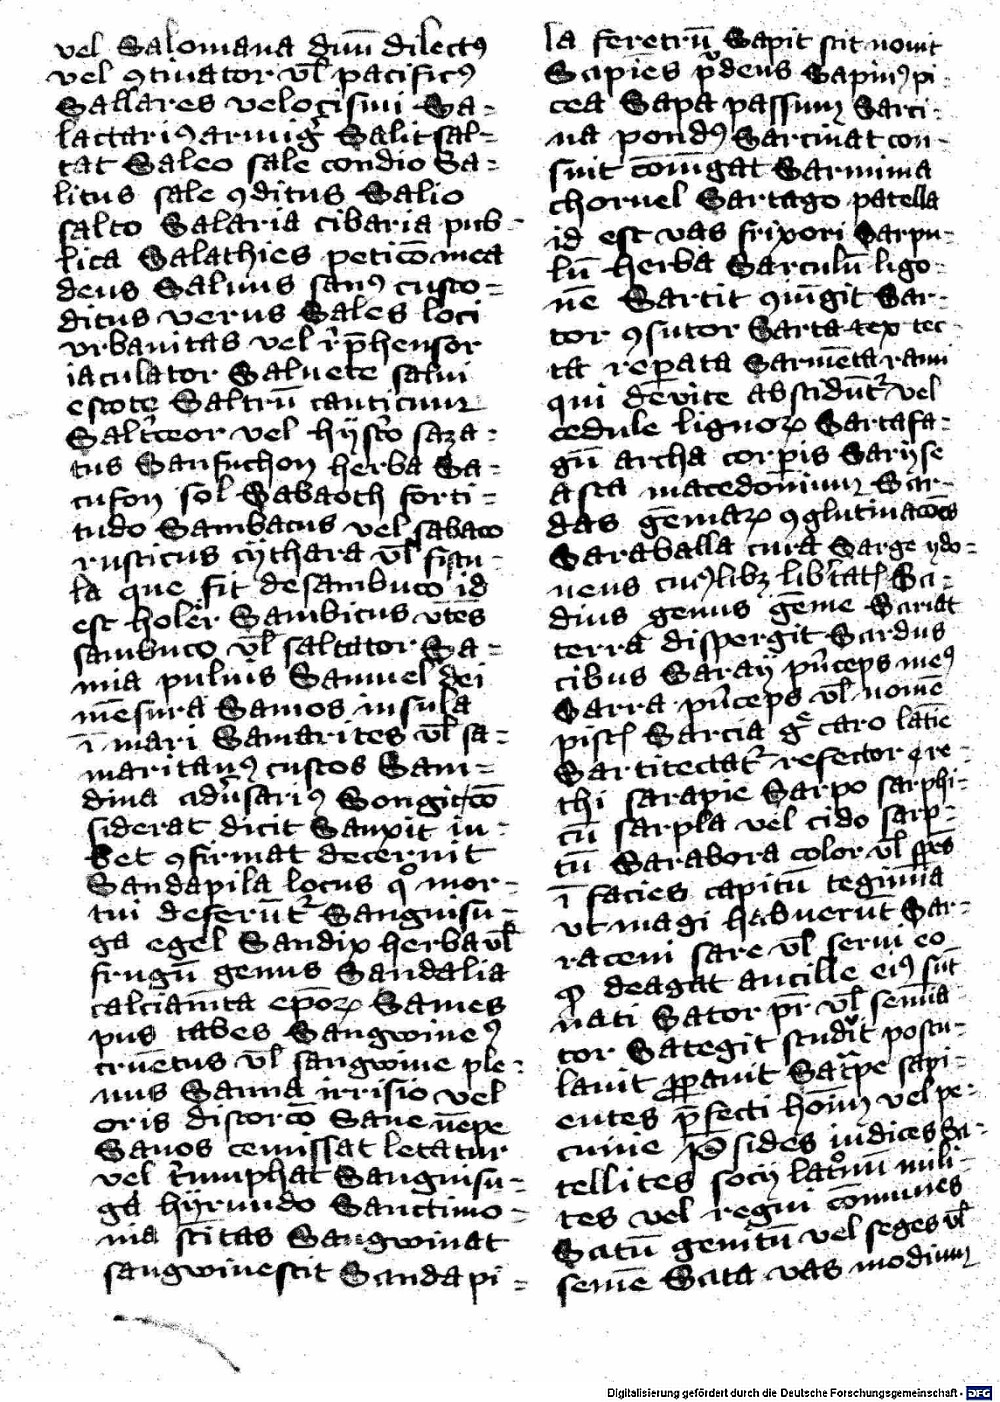 vel Salomana diuū dilectꝰ
vel ꝯtinator vl̄ pacificꝰ
Sallares velocisimi Sa-
lactariꝰ armig̉ Salit sal-
tat Saleo sale condio Sa-
litus sale ꝯditus Salio
salto Salaria cibaria pub-
lica Salathies peticō mea
deus Saluus sanꝰ custo-
ditus verus Sales loci
vrbanitas vel rp̄hensor
iaculator Saluete salui
estote Saltrū canticum
vel hystō saza-
tus Sanfuchon herba Sa-
cufon sol Sabaoth forti-
tudo Sambacus vel sabaco
rusticus cythara vl̄ fistu-
la que fit de sambuco id
est holer Sambicus vtēs
sambuco vl̄ saltator Sa-
mia puluis Samuel dei
mēsura Samos insula
ī mari Samarites vl̄ sa-
maritanꝰ custos Sam-
dina adūsariꝰ Songit cō
siderat dicit Sanxit iu-
bet ꝯfirmat decernit
Sandapila locus qͦ mor-
tui deferūtᷣ Sanguisu-
ga egel Sandix herba vl̄
frugū genus Sandalia
calciamīta epōꝝ Sames
pus tabes Sangwineꝰ
cruētus vl̄ sangwine ple-
nus Sanna irrisio vel
oris distorcō Sane nēpe
Sanos cemissat letatur
vel triumphat Sanguisu-
ga hyrundo Sanctimo-
nia sc̄itas Sangwinat
sangwinescit Sandapi-
la feretrū Sapit scit nouit
Sapies pͮdens Sapinꝰ pi-
cea Sapa passum Sarci-
na pondꝰ Sarcinat con-
suit cōiūgat Sarmima
choruel Sartago patella
id est vas frixori Sarpu-
lū herba Sarculū ligo-
nē Sartit ꝯiūgit Sar-
tor ꝯsutor Sarta tex tec
ta reperata Sarmēta rami
qui de vite abscidūtᷣ vel
cedule lignoꝝ Sartafa-
gū archa corꝑis Saryse
asta macedonium Sar-
das gēmaꝝ ꝯglutinacōes
Saraballa cura Sarge ydo-
neus cuiꝰlibꝫ libtatꝭ Sa-
dius genus gēme Sariat
terrā dispergit Sardus
cibus Saray pn̄ceps meꝰ
Sarra pn̄ceps vl̄ nomē
piscꝭ Sarcia gͤ caro latīe
Sartitectatᷣ refector
thi sarapie Sarpo sarphi-
cū sarpla vel cido sarp-
tū Sarabora color vl̄
ī facies capitū tegimīa
vt magi habuerūt Sar-
raceni sare vl̄ serui eo
ꝙ de agat ancille eiꝰ sūt
nati Sator pr̄ vl̄ semīa-
tor Sategit studuit postu-
lauit ꝓperauit Satᵃpe sapi-
entes p̄fecti hoīm vel pe-
cunie p̄sides iudices Sa-
tellites socij latͦnū mili-
tes vel regni cōmunes
Satū genitū vel seges vl̄
semē Sata vas modium
Digitalisierung gefördert durch die Deutsche Forschungsgemeinschaft - DFG